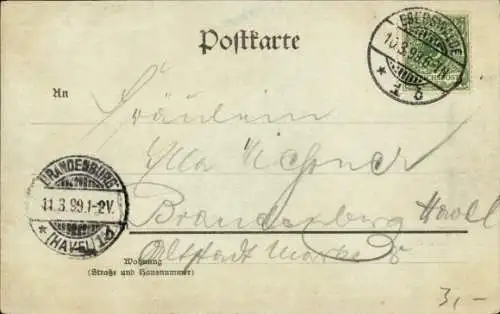 Postkarte
EBERSWALDE
10.3.99.6-7N.
* 1 b
REICHSPOST
An
Fräulein
Ella
Brandenburg Havel
Altstadt
BRANDENBURG
11.3.99.1-2V.
* (HAVEL) 1d
Wohnung
(Straße und Hausnummer)
3,-